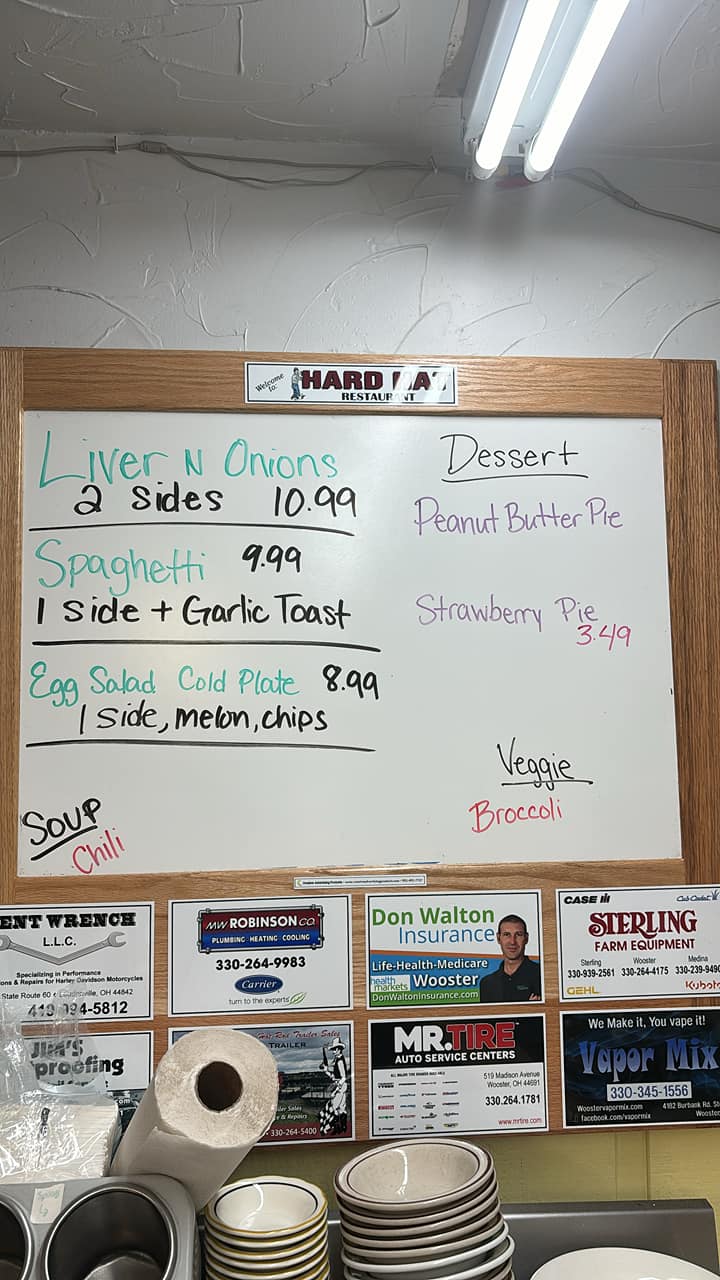 Welcome to:
HARD HAT
RESTAURANT
Liver N Onions
2 sides 10.99
Spaghetti 9.99
1 side + Garlic Toast
Egg Salad Cold Plate 8.99
1 side, melon, chips
Soup
Chili
Dessert
Peanut Butter Pie
Strawberry Pie
3.49
Veggie
Broccoli
ENT WRENCH
L.L.C.
Specializing in Performance
ons & Repairs for Harley Davidson Motorcycles
State Route 60 Loudonville, OH 44842
MW ROBINSON CO.
PLUMBING HEATING COOLING
330-264-9983
Carrier
turn to the experts
Don Walton
Insurance
Life-Health-Medicare
health
markets
Wooster
DonWaltoninsurance.com
CASE IH
Cub Cadet
STERLING
FARM EQUIPMENT
Sterling Wooster Medina
330-939-2561 330-264-4175 330-239-9490
GEHL
Kubota
JIM'S
proofing
Hot Rod Trailer Sales
TRAILER
330-264-5400
MR.TIRE
AUTO SERVICE CENTERS
519 Madison Avenue
Wooster, OH 44691
330.264.1781
www.mrtire.com
We Make it, You vape it!
Vapor Mix
330-345-1556
Woostervapormix.com
facebook.com/vapormix
4162 Burbank Rd.